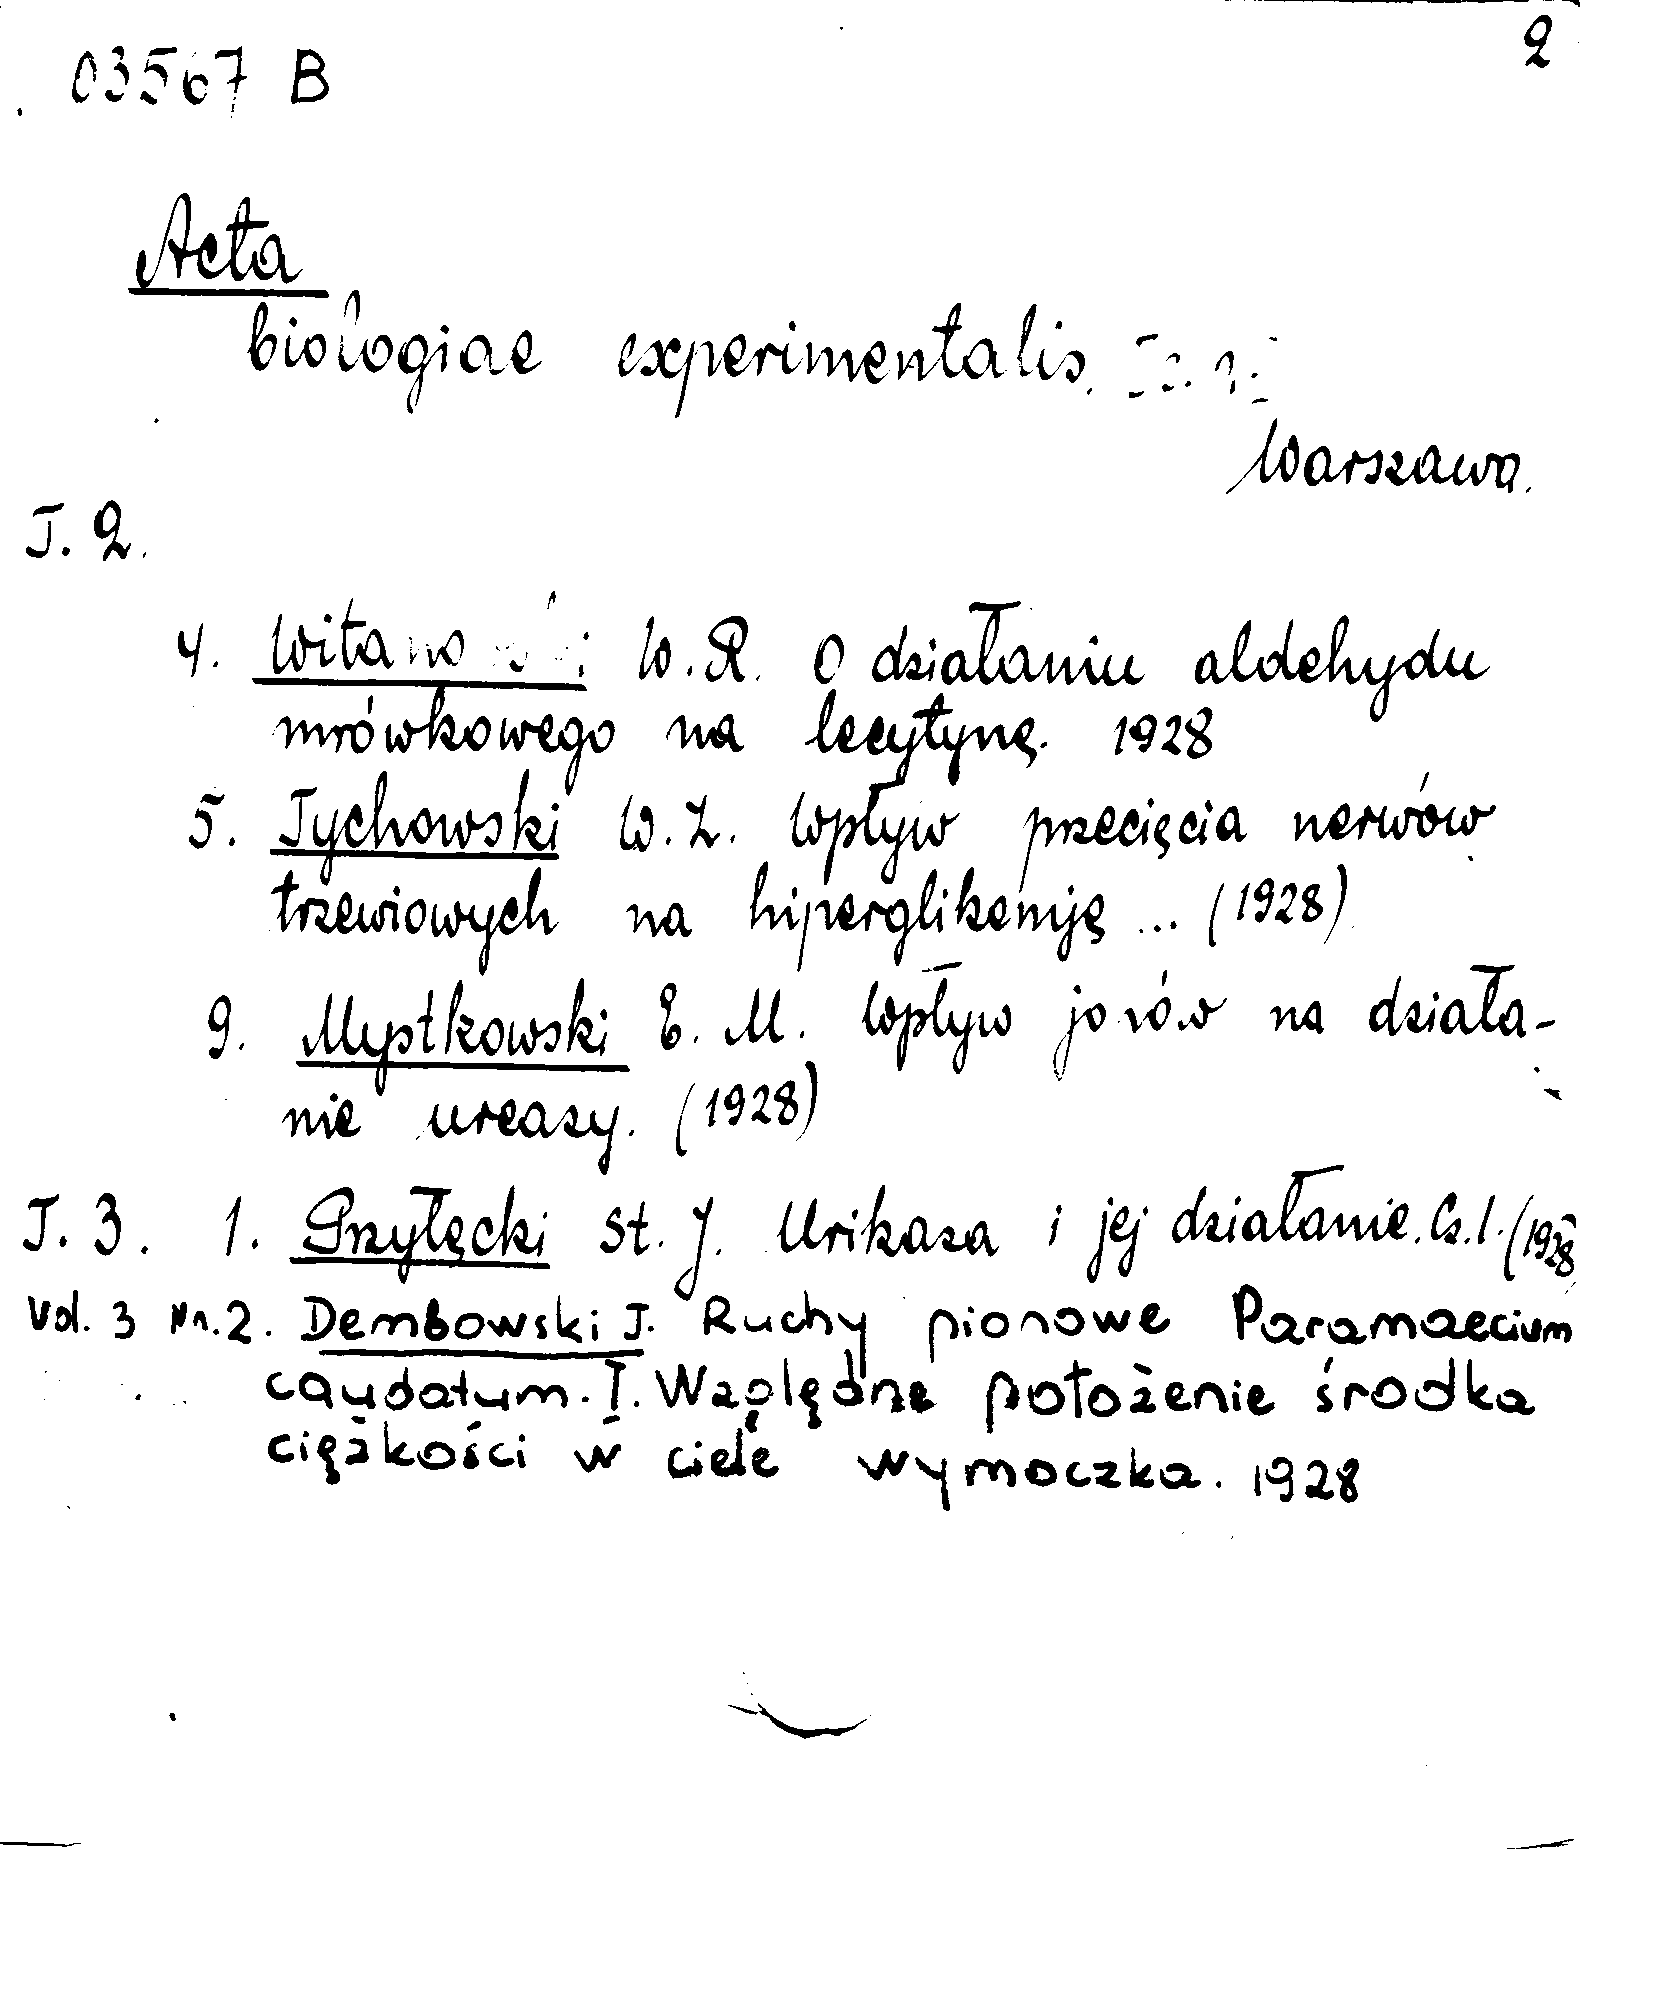 2
03567 B
Acta
biologiae experimentalis.
Warszawa.
T. 2.
4. W. R. O działaniu aldehydu
mrówkowego na lecytynę. 1928
5. Tychowski W. Z. Wpływ przecięcia nerwów
trzewiowych na hiperglikemję ... (1928)
9. Mystkowski E. M. Wpływ jonów na działa-
nie ureazy. (1928)
T. 3. 1. Przyłęcki St. J. Urikaza i jej działanie. Cz. I. (1928
Vol. 3 Nr. 2. Dembowski J. Ruchy pionowe Paramaecium
caudatum. I. Względne położenie środka
ciężkości w ciele wymoczka. 1928